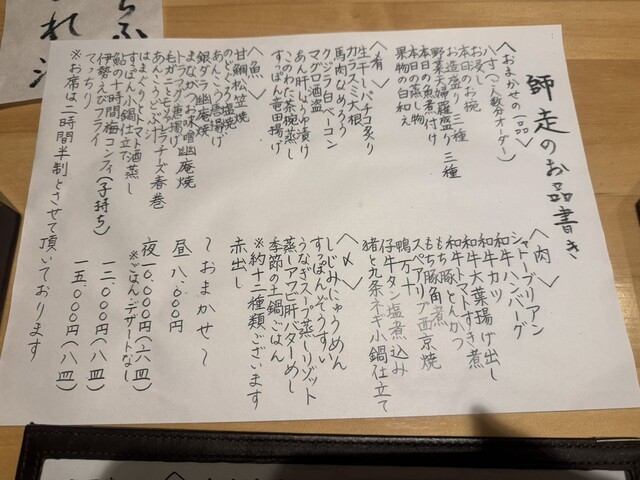 師走のお品書き
〈おまかせの一品〉
八寸(二人数分オーダー)
お浸し
本日のお椀
お造り盛り 三種
野菜天婦羅盛り 三種
本日の魚煮付け
本日の蒸し物
果物の白和え
〈有〉
生キャビア
カラスミ大根
馬肉なめろう
クジラ白ベーコン
マグロ酒盗
あん肝しょうゆ漬け
このわた茶椀蒸し
すっぽん竜田揚げ
〈魚〉
甘鯛松笠焼
のどぐろ塩焼
あんこう唐揚げ
銀ダラ幽庵焼
まながつお味噌幽庵焼
トラフグ唐揚げ
毛ガニとモッツァレラチーズ春巻
あんこうどぶ汁
はまぐりトマト酒蒸し
すっぽん小鍋仕立て
鮎の十時間梅コンフィ(子持ち)
伊勢えびフライ
てっちり
※お席は二時間半制とさせて頂いております
〈肉〉
シャトーブリアン
和牛ハンバーグ
和牛カツ
和牛大葉揚げ出し
和牛トマトすき煮
もち豚とんかつ
もち豚角煮
スペアリブ西京焼
鴨万十
仔牛タン塩煮込み
猪と九条ネギ小鍋仕立て
〈〆〉
しじみにゅうめん
すっぽんぞうすい
うなぎスープ蒸しリゾット
蒸しアワビ肝バターめし
季節の土鍋ごはん
※約十二種類ございます
赤出し
〜おまかせ〜
昼 八、〇〇〇円
夜 一〇、〇〇〇円(六皿)
※ごはん・デザートなし
一二、〇〇〇円(八皿)
一五、〇〇〇円(八皿)